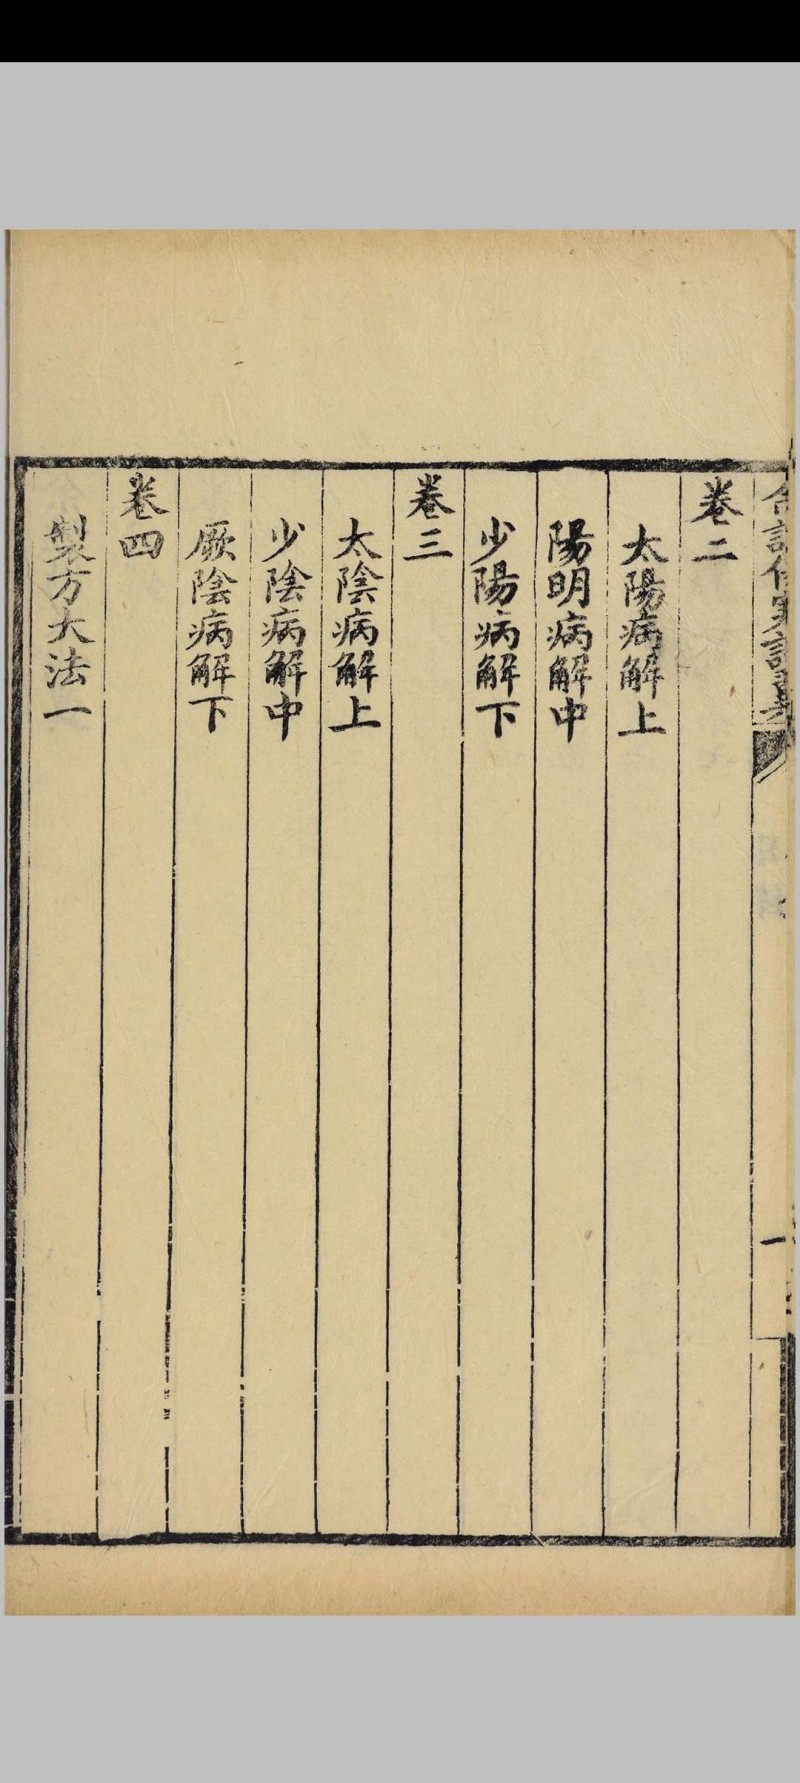 卷二
太陽病解上
陽明病解中
少陽病解下
卷三
太陰病解上
少陰病解中
厥陰病解下
卷四
製方大法一
一